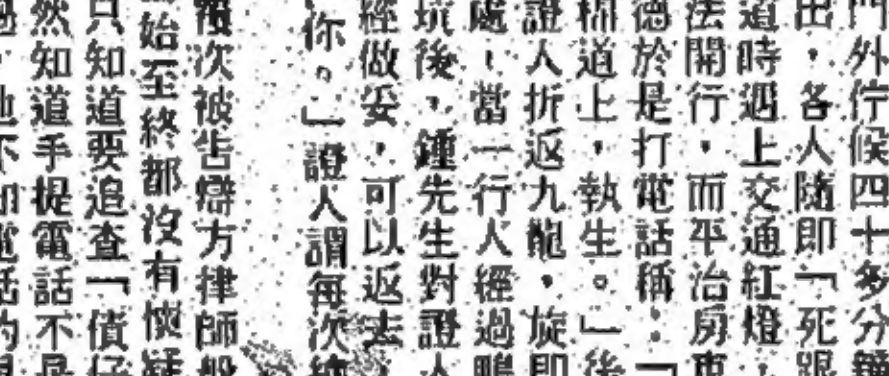 門外佇候四十多分鐘
出，各人隨即「死跟
道時遇上交通紅燈，
法開行，而平治房車
德於是打電話稱：「
棉道上，執生。」後
證人折返九龍，旋即
處，當一行人經過鴨
坑後，鍾先生對證人
經做妥，可以返去
你。」證人謂每次
次被告辯方律師盤
始至終都沒有懷疑
只知道要追查「債仔
然知道手提電話不是
他不知電話的